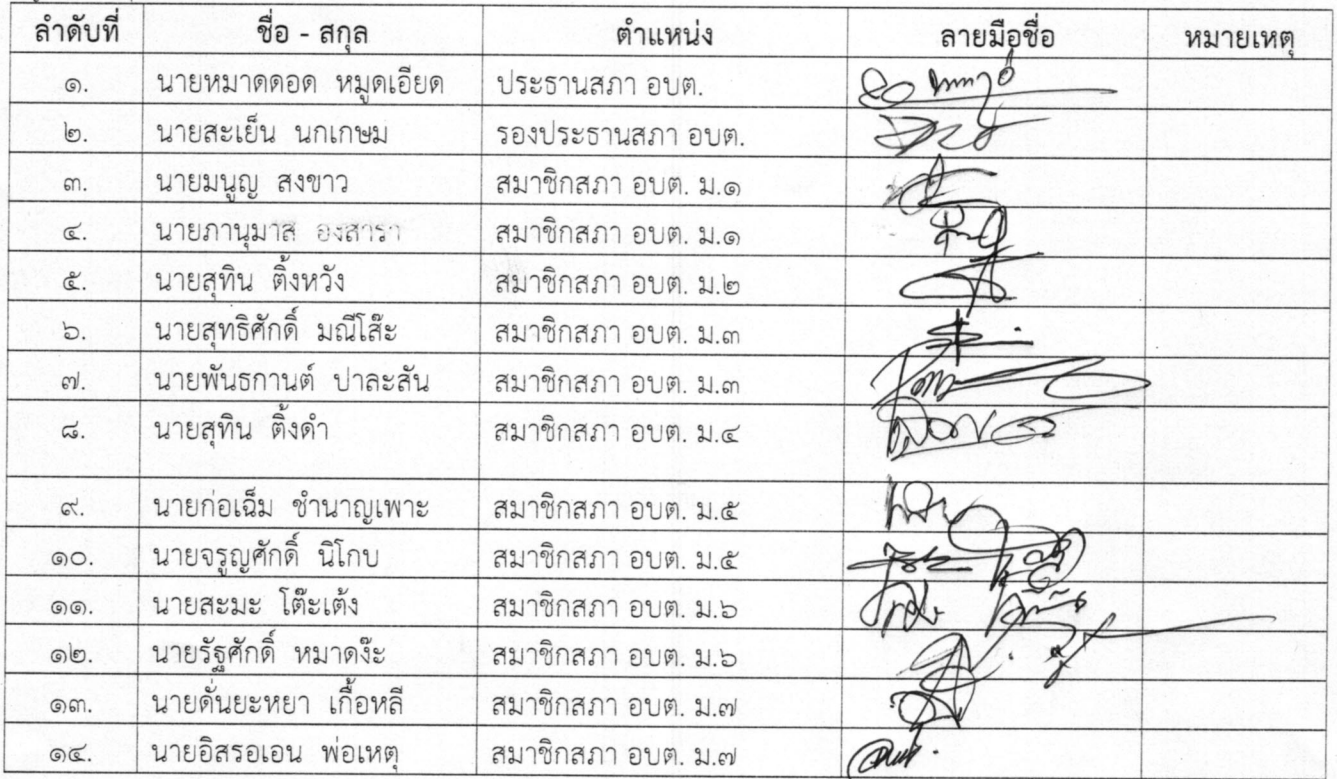 ลำดับที่ ชื่อ - สกุล ตำแหน่ง ลายมือชื่อ หมายเหตุ
๑. นายหมาดดอด หมูดเอียด ประธานสภา อบต.
๒. นายสะเย็น นกเกษม รองประธานสภา อบต.
๓. นายมนูญ สงขาว สมาชิกสภา อบต. ม.๑
๔. นายภานุมาส องสารา สมาชิกสภา อบต. ม.๑
๕. นายสุทิน ติ้งหวัง สมาชิกสภา อบต. ม.๒
๖. นายสุทธิศักดิ์ มณีโส๊ะ สมาชิกสภา อบต. ม.๓
๗. นายพันธกานต์ ปาละสัน สมาชิกสภา อบต. ม.๓
๘. นายสุทิน ติ้งดำ สมาชิกสภา อบต. ม.๔
๙. นายก่อเฉ็ม ชำนาญเพาะ สมาชิกสภา อบต. ม.๕
๑๐. นายจรูญศักดิ์ นิโกบ สมาชิกสภา อบต. ม.๕
๑๑. นายสะมะ โต๊ะเต้ง สมาชิกสภา อบต. ม.๖
๑๒. นายรัฐศักดิ์ หมาดง๊ะ สมาชิกสภา อบต. ม.๖
๑๓. นายดั่นยะหยา เกื้อหลี สมาชิกสภา อบต. ม.๗
๑๔. นายอิสรอเอน พ่อเหตุ สมาชิกสภา อบต. ม.๗